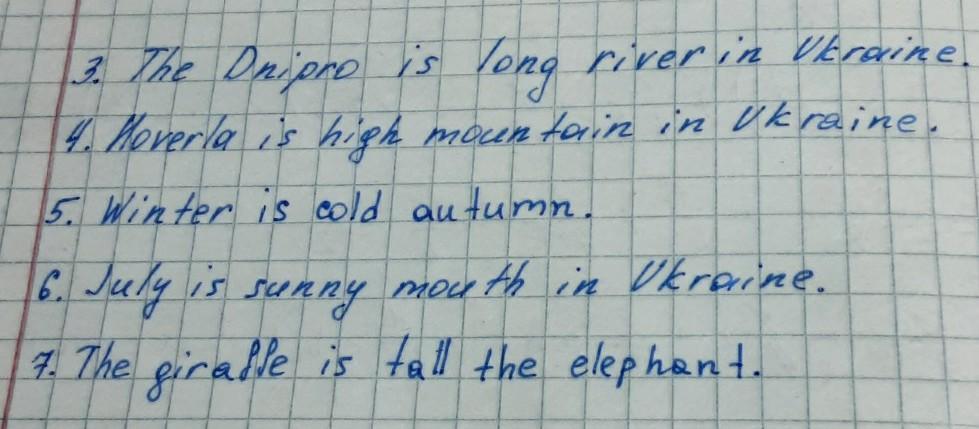 3. The Dnipro is long river in Ukraine.
4. Hoverla is high mountain in Ukraine.
5. Winter is cold autumn.
6. July is sunny mouth in Ukraine.
7. The giraffe is tall the elephant.